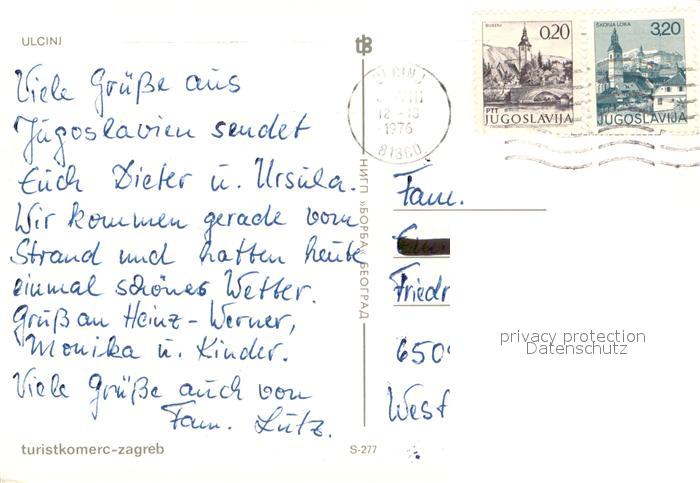 ULCINJ
Viele Grüße aus
Jugoslavien sendet
Euch Dieter u. Ursula.
Wir kommen gerade vom
Strand und hatten heute
einmal schönes Wetter.
Gruß an Heinz-Werner,
Monika u. Kinder.
Viele Grüße auch von
Fam. Lutz.
turistkomerc-zagreb
S-277
НИГП »БОРБА« БЕОГРАД
ULCINJ
12-13
1976
81360
0,20
PTT
JUGOSLAVIJA
ŠKOFJA LOKA
3,20
JUGOSLAVIJA
Fam.
Friedr
650
West
privacy protection
Datenschutz